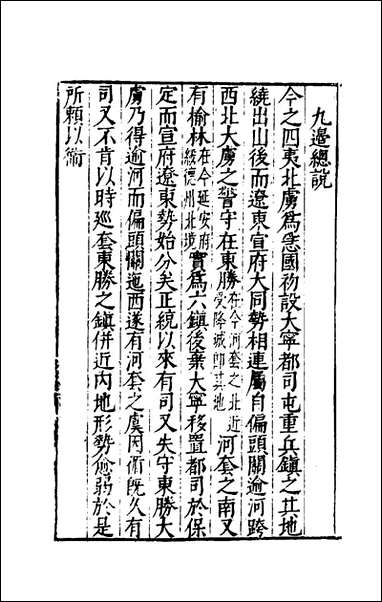 九邉總說
今之四夷北虜爲急國初設大寧都司屯重兵鎭之其地
繞出山後而遼東宣府大同勢相連屬自偏頭關逾河跨
西北大虜之警守在東勝在今河套之北近受降城即其地河套之南又
有榆林在今延安府綏德州北境實爲六鎭後棄大寧移置都司於保
定而宣府遼東勢始分矣正統以來有司又失守東勝大
虜乃得逾河而偏頭關迤西遂有河套之虞因循旣久有
司又不肯以時廵套東勝之鎭併近内地形勢愈弱於是
所頼以衛